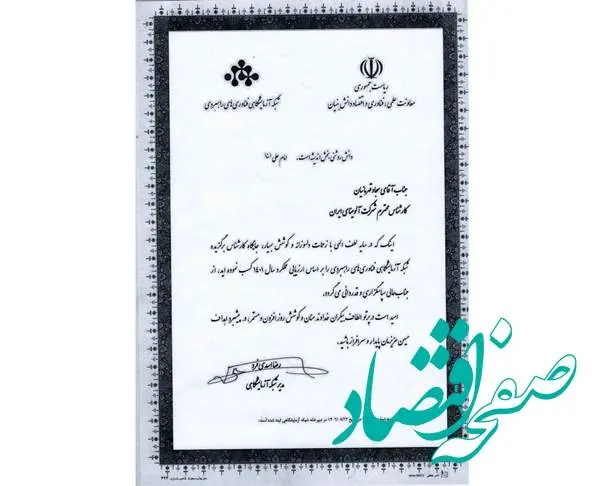 ریاست جمهوری
معاونت علمی، فناوری و اقتصاد دانش بنیان
شبکه آزمایشگاهی فناوری‌های راهبردی
دانش روشنی بخش اندیشه است. امام علی
جناب آقای سجاد قهرمانیان
کارشناس محترم شرکت آلومینای ایران
اینک که در سایه لطف الهی با زحمات دلسوزانه و کوشش بسیار، جایگاه کارشناس برگزیده
شبکه آزمایشگاهی فناوری‌های راهبردی را بر اساس ارزیابی عملکرد سال ۱۴۰۱ کسب نموده اید، از
جنابعالی سپاسگزاری و قدردانی می گردد.
امید است در پرتو الطاف بیکران خداوند منان و کوشش روزافزون و مستمر، در پیشبرد اهداف
میهن عزیزمان پایدار و سرافراز باشید.
رضا اسدی فرد
مدیر شبکه آزمایشگاهی
در دبیرخانه شبکه آزمایشگاهی ثبت شده است.
صفحه اقتصاد